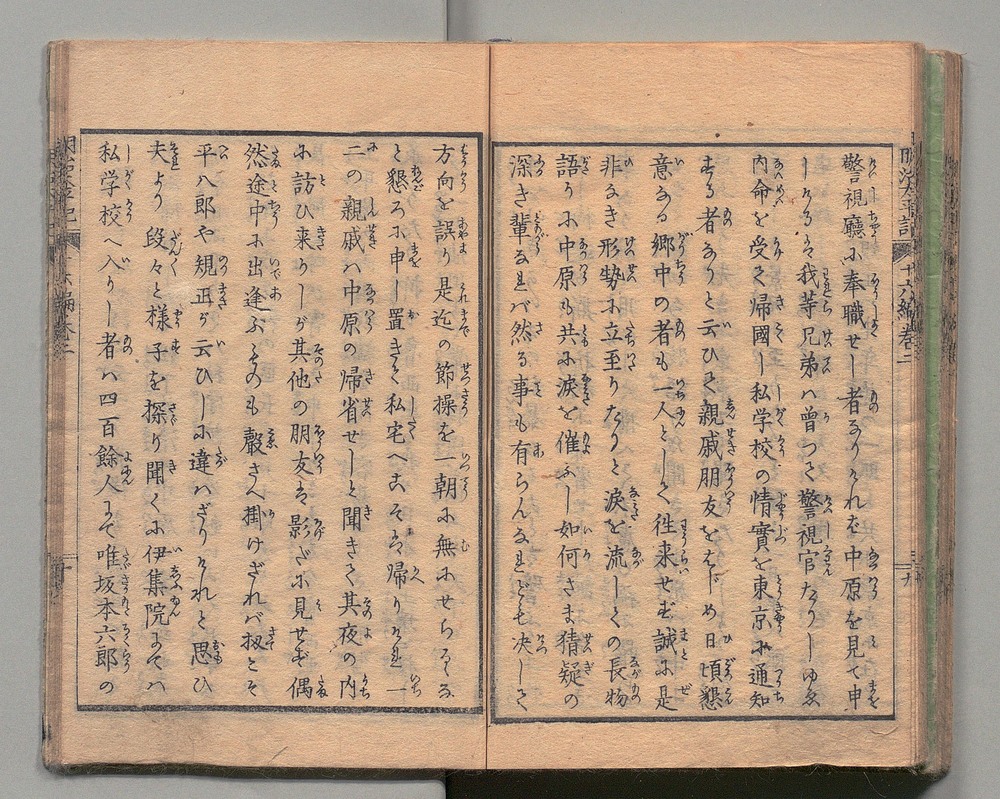 明治太平記 十六編巻二
九
警視廳に奉職せし者なりければ中原を見て申
しけるは我等兄弟ハ曾つて警視官たりしゆゑ
内命を受て帰國し私学校の情實を東京に通知
する者なりと云ひて親戚朋友をはじめ日頃懇
意なる郷中の者も一人として徃来せず誠に是
非なき形勢に立至りたりと涙を流しての長物
語りに中原も共に涙を催ふし如何さま猜疑の
深き輩なれバ然る事も有らんなれども决して
方向を誤り是迄の節操を一朝に無にせらるな
と懇ろに申し置きて私宅へこそは帰りけれ一
二の親戚ハ中原の帰省せしと聞きて其夜の内
に訪ひ来りしが其他の朋友は影だに見せず偶
然途中に出逢ふものも聲さへ掛けざれバ扨こそ
平八郎や規正が云ひしに違ハざりけれと思ひ
夫より段々と様子を探り聞くに伊集院にてハ
私学校へ入りし者ハ四百餘人にて唯坂本六郎の